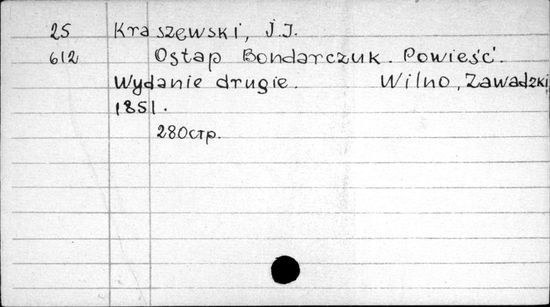 25 Kraszewski, J.I.
612 Ostap Bondarczuk. Powieść.
Wydanie drugie. Wilno, Zawadzki,
1851.
280стр.